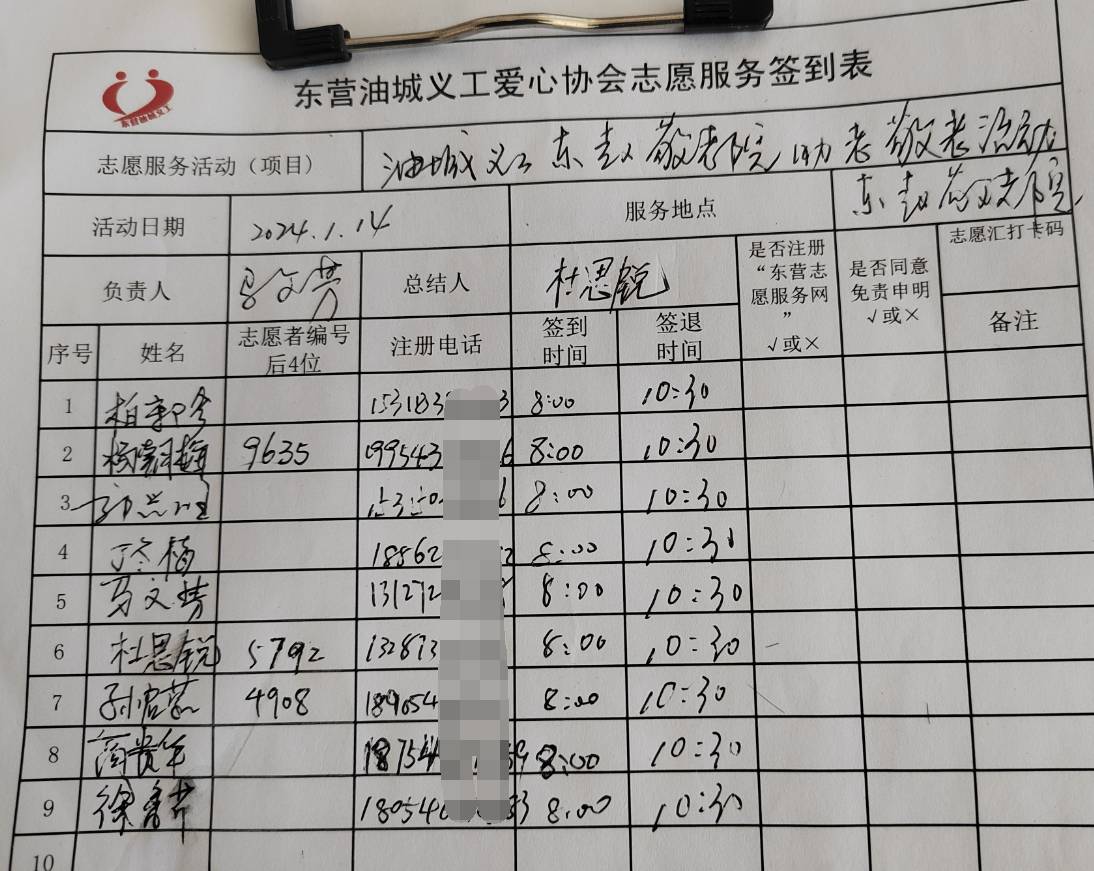 东营油城义工
东营油城义工爱心协会志愿服务签到表
志愿服务活动（项目） 油城义工东赵敬老院助老敬老活动
活动日期 2024.1.14 服务地点 东赵敬老院
负责人 马文芳 总结人 杜思锐 是否注册“东营志愿服务网” √或× 是否同意免责申明 √或× 志愿汇打卡码
序号 姓名 志愿者编号后4位 注册电话 签到时间 签退时间 备注
1 153183 3 8:00 10:30
2 9635 199543 6 8:00 10:30
3 6 8:00 10:30
4 18862 2 8:00 10:30
5 马文芳 131272 8:00 10:30
6 杜思锐 5792 132873 8:00 10:30
7 4908 189054 8:00 10:30
8 商贵华 18754 59 8:00 10:30
9 18054 33 8:00 10:30
10